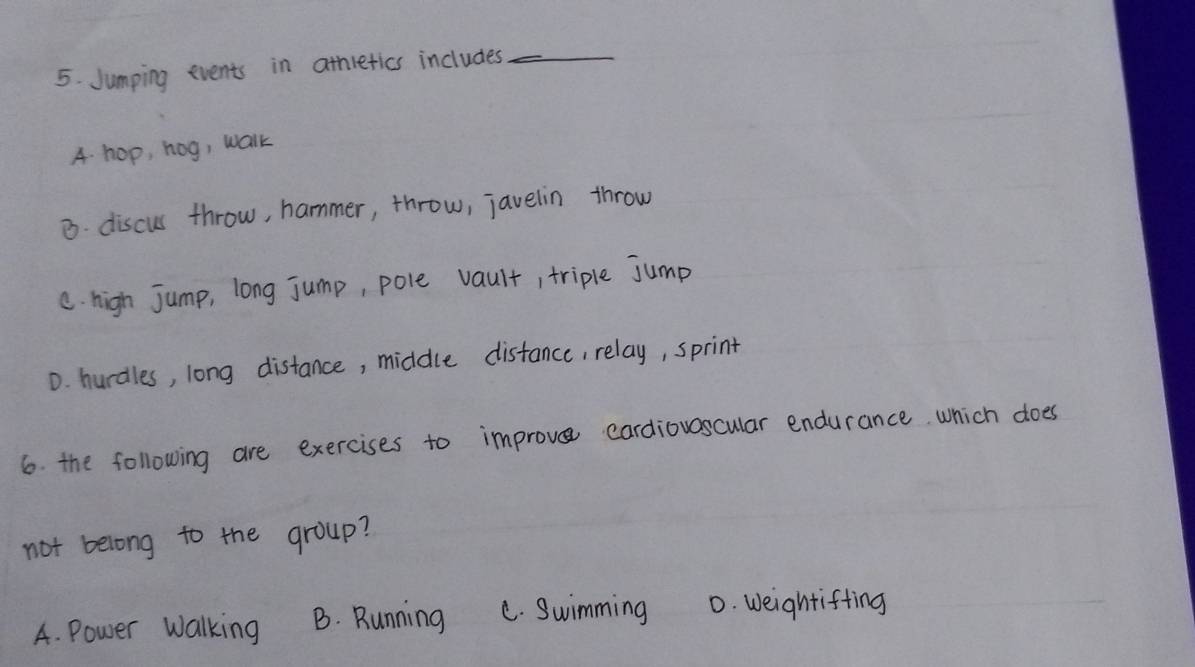 5. Jumping events in athletics includes ______
A. hop, hog, walk
B. discus throw, hammer, throw, javelin throw
C. high jump, long jump, pole vault, triple jump
D. hurdles, long distance, middle distance, relay, sprint
6. the following are exercises to improve cardiovascular endurance. which does
not belong to the group?
A. Power Walking B. Running C. Swimming D. Weightifting